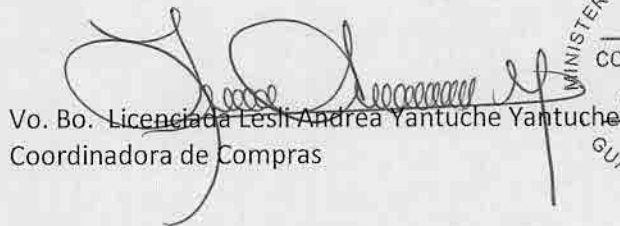 MINISTER
CO
Vo. Bo. Licenciada Lesli Andrea Yantuche Yantuche
Coordinadora de Compras
GU